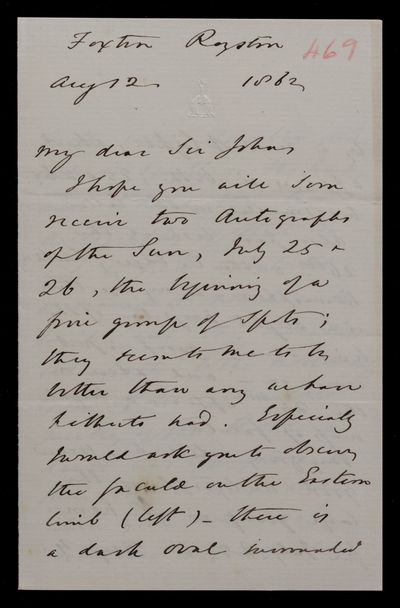 Foxton Royston
469
Aug 12 1862
My dear Sir John
I hope you will soon
receive two Autographs
of the Sun, July 25 &
26, the beginning of a
fine group of Spots;
they seem to me to be
better than any we have
hitherto had. Especially
I would ask you to observe
the faculæ on the Eastern
limb (left) - there is
a dark oval surrounded